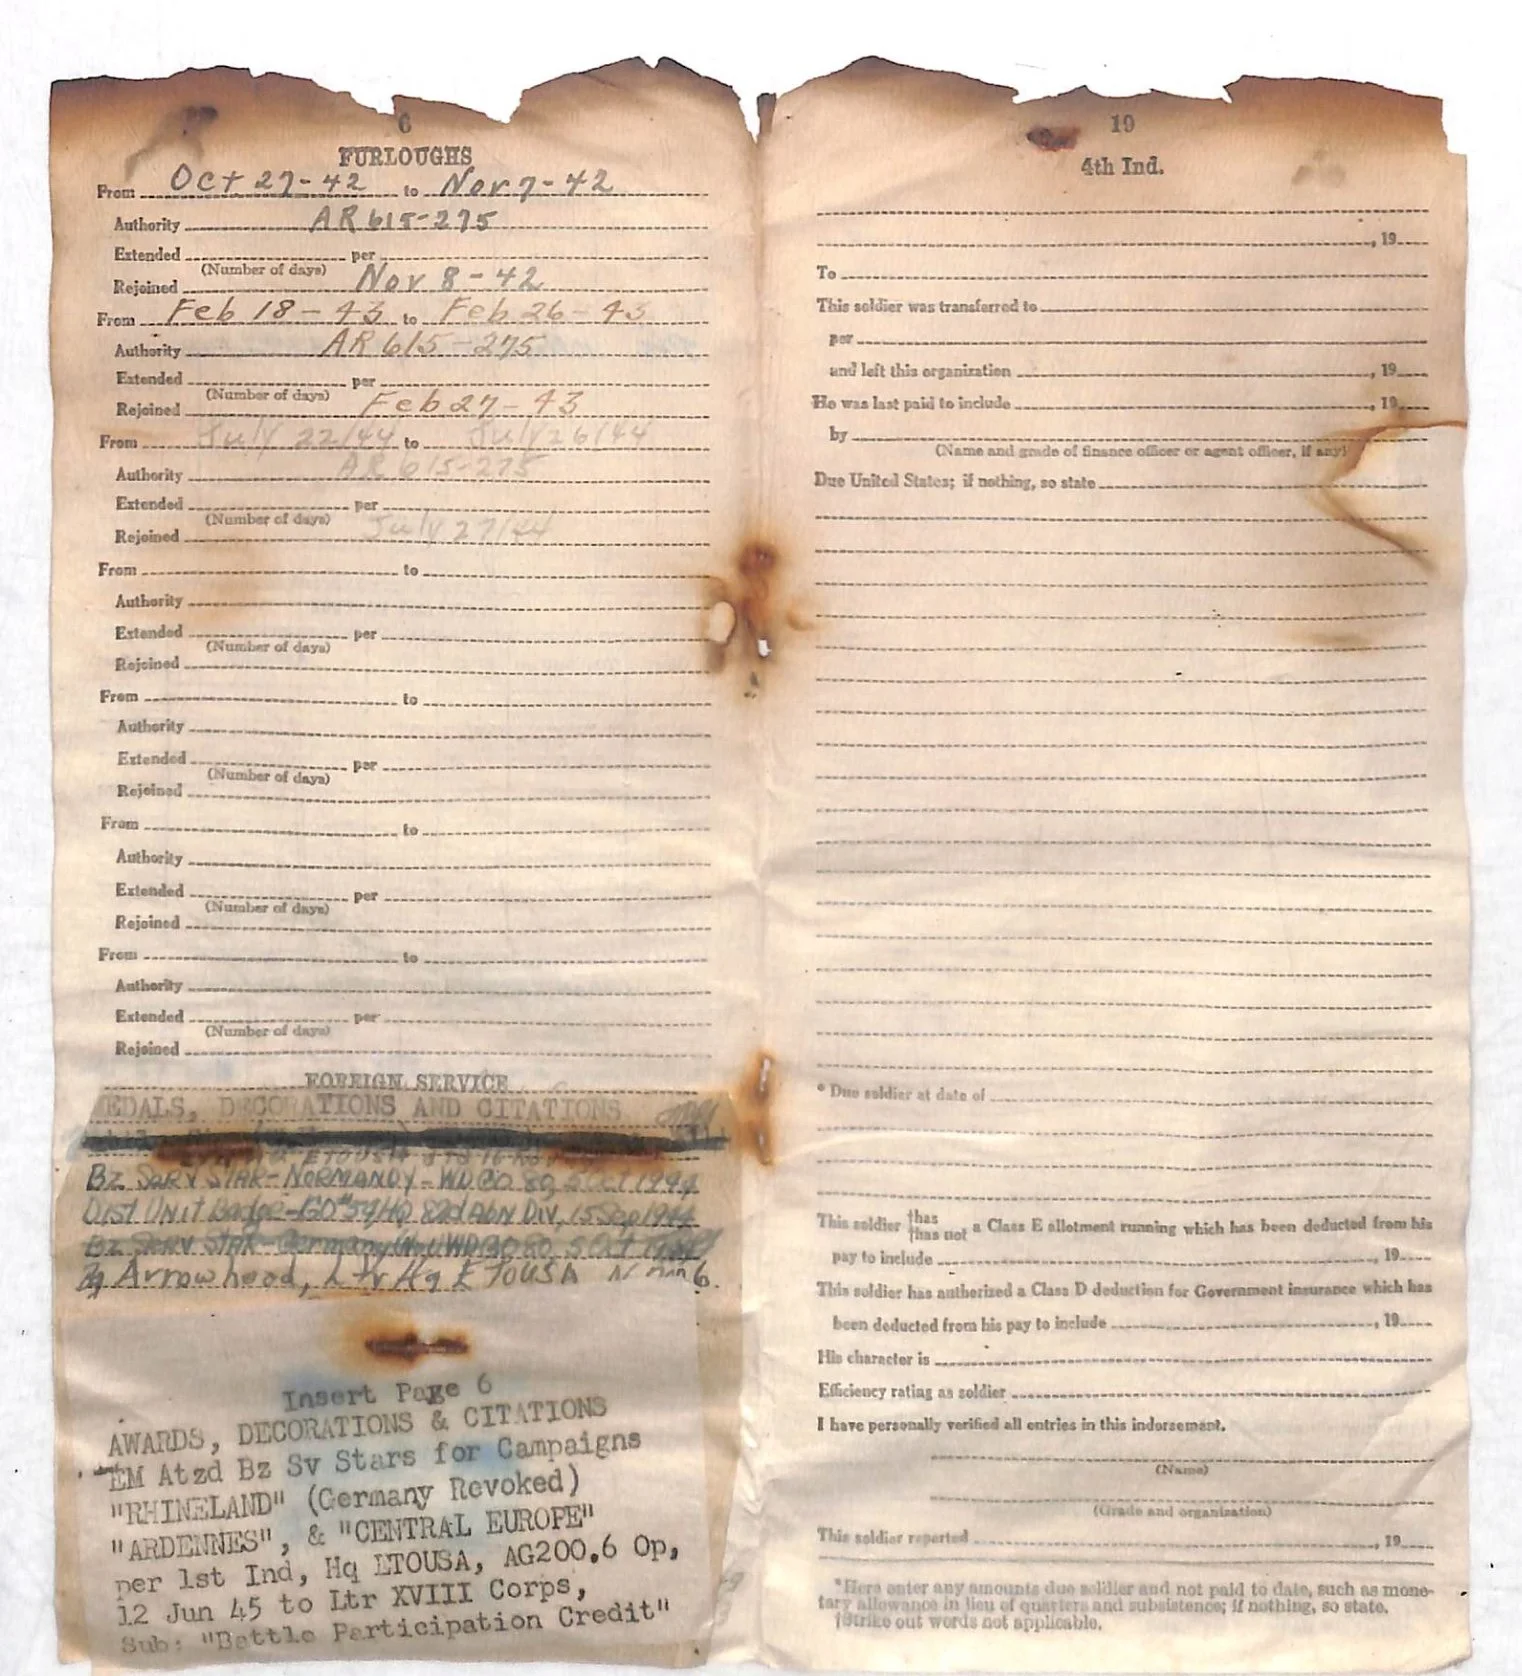 6
FURLOUGHS
From Oct 27-42 to Nov 7-42
Authority AR 615-275
Extended per
(Number of days)
Rejoined Nov 8-42
From Feb 18-43 to Feb 26-43
Authority AR 615-275
Extended per
(Number of days)
Rejoined Feb 27-43
From July 22/44 to July 26/44
Authority AR 615-275
Extended per
(Number of days)
Rejoined July 27/44
From to
Authority
Extended per
(Number of days)
Rejoined
From to
Authority
Extended per
(Number of days)
Rejoined
From to
Authority
Extended per
(Number of days)
Rejoined
From to
Authority
Extended per
(Number of days)
Rejoined
FOREIGN SERVICE
EDALS, DECORATIONS AND CITATIONS
Bz SERV STAR-NORMANDY-WD GO 80, 5 Oct 1944
Dist Unit Badge-GO#54 HQ 82d Abn Div, 15 Sep 1944
Bz SERV STAR-Germany WD GO 80 5 Oct
Arrowhead, Ltr Hq ETOUSA
Insert Page 6
AWARDS, DECORATIONS & CITATIONS
EM Atzd Bz Sv Stars for Campaigns
"RHINELAND" (Germany Revoked)
"ARDENNES", & "CENTRAL EUROPE"
per 1st Ind, Hq ETOUSA, AG200.6 Op,
12 Jun 45 to Ltr XVIII Corps,
Sub: "Battle Participation Credit"
19
4th Ind.
, 19
To
This soldier was transferred to
per
and left this organization , 19
He was last paid to include , 19
by
(Name and grade of finance officer or agent officer, if any)
Due United States; if nothing, so state
* Due soldier at date of
This soldier †has †has not a Class E allotment running which has been deducted from his
pay to include , 19
This soldier has authorized a Class D deduction for Government insurance which has
been deducted from his pay to include , 19
His character is
Efficiency rating as soldier
I have personally verified all entries in this indorsement.
(Name)
(Grade and organization)
This soldier reported , 19
*Here enter any amounts due soldier and not paid to date, such as mone-
tary allowance in lieu of quarters and subsistence; if nothing, so state.
†Strike out words not applicable.